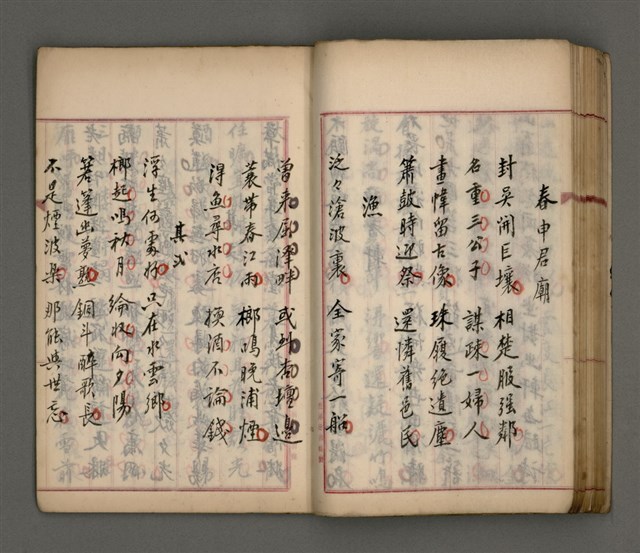 春申君廟
封吳開巨壤 相楚服強鄰
名重三公子 謀疎一婦人
畫幃留古像 珠履絕遺塵
簫鼓時迎祭 還憐舊邑民
漁
泛々滄波裏 全家寄一船
曾来屈澤畔 或到杏壇邊
蓑帶春江雨 榔鳴晚浦煙
得魚尋水店 換酒不論錢
其弍
浮生何處好 只在水雲鄉
榔起鳴秋月 綸收向夕陽
篷幽夢熟 銅斗醉歌長
不是煙波樂 那能與世忘